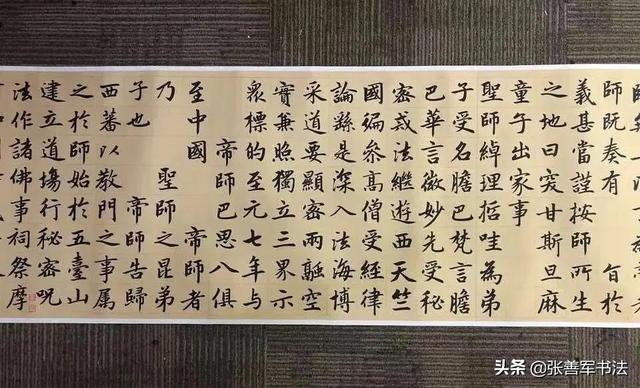 師既奏有 旨於
義甚當謹按師所生
之地曰突甘斯旦麻
童子出家事
聖師綽理哲哇為弟
子受名膽巴梵言膽
巴華言微妙先受秘
密戒法繼遊西天竺
國徧參高僧受經律
論繇是深入法海博
采道要顯密兩融空
實兼照獨立三界示
眾標的至元七年與
帝師巴思八俱
至中國 帝師者
乃 聖師之昆弟
子也 帝師告歸
西蕃以教門之事屬
之於師始於五臺山
建立道場行秘密咒
法作諸佛事祠祭摩
头条 @张善军书法